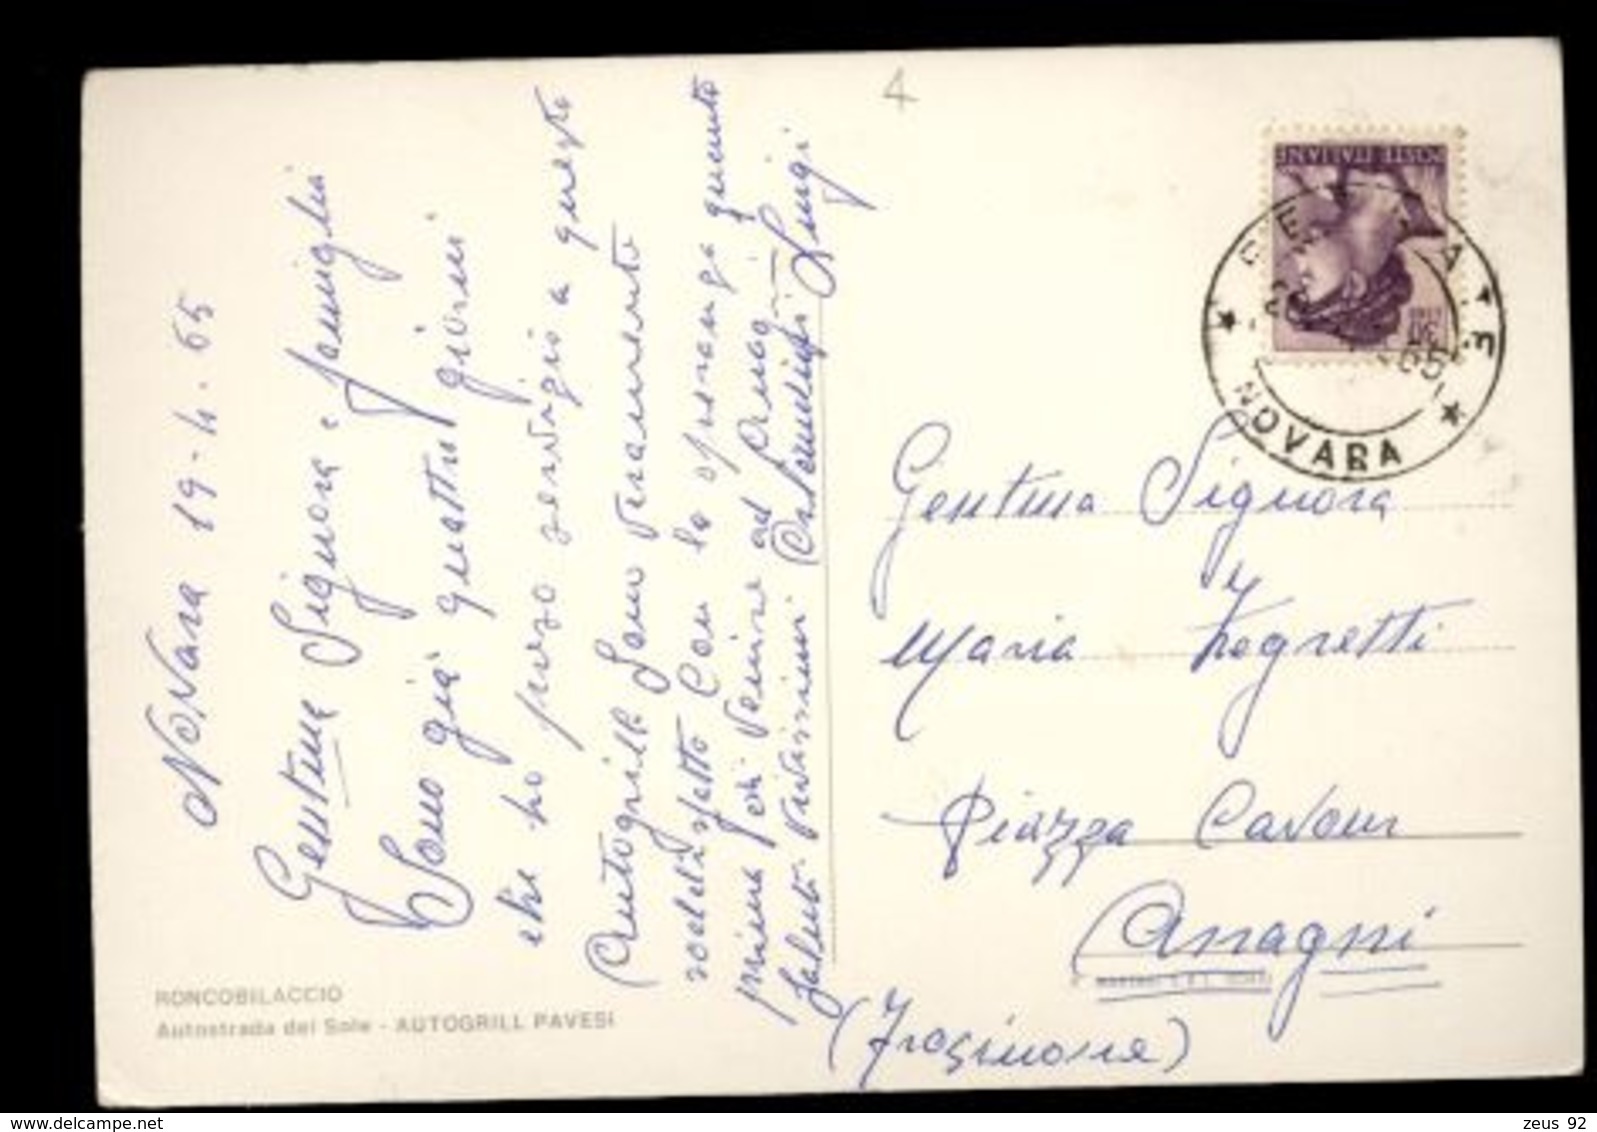 Novara 19-4.65
Gentma Signora e famiglia
Sono già quattro giorni
che ho preso servizio a questo
Autogrill sono veramente
soddisfatto Con la speranza quanto
prima di venire ad
Saluti vivissimi Luigi
RONCOBILACCIO
Autostrada del Sole - AUTOGRILL PAVESI
POSTE ITALIANE
NOVARA
Gentma Signora
Maria
Piazza Cavour
Anagni
(Frosinone)
zeus 92